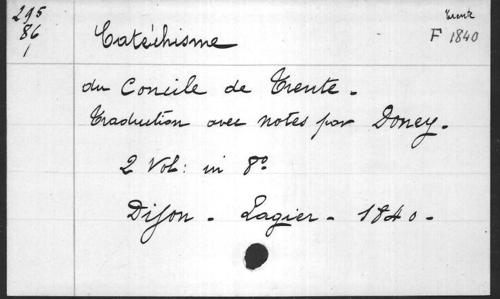 295
86
1
Trente
F 1840
Catéchisme
du Concile de Trente.
Traduction avec notes par Doney.
2 Vol: in 8º
Dijon - Lagier - 1840.